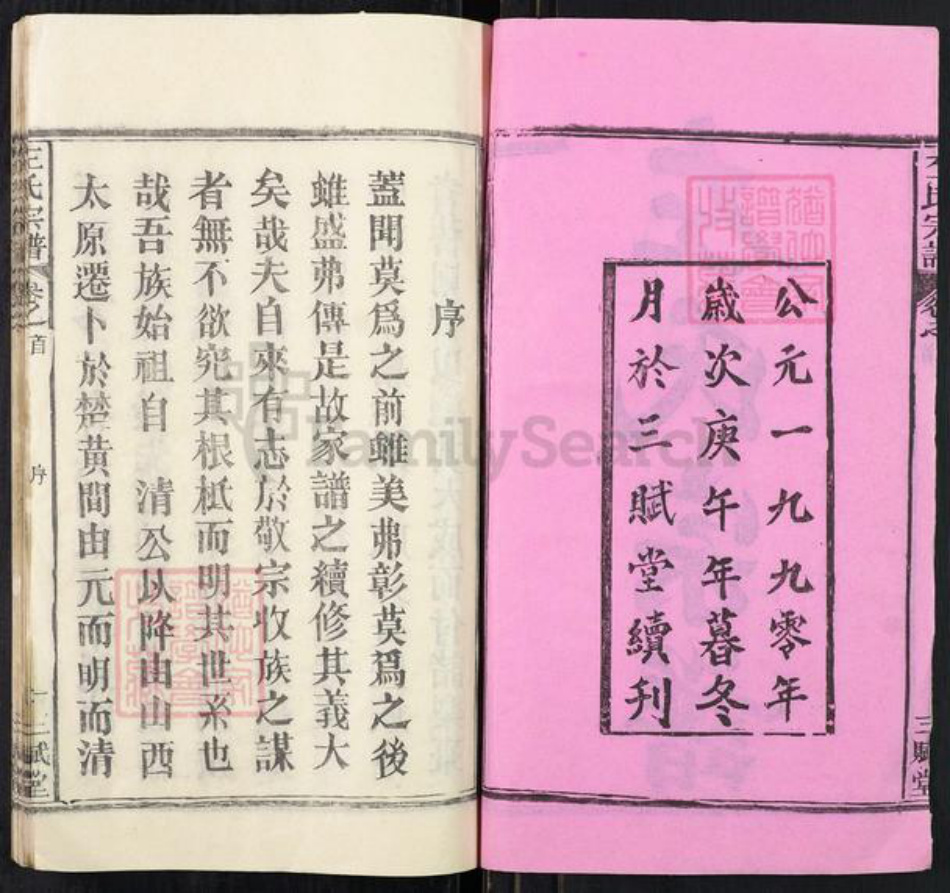 公元一九九零年
歲次庚午年暮冬
月於三賦堂續刋
三賦堂
序
蓋聞莫爲之前雖美弗彰莫爲之後
雖盛弗傳是故家譜之續修其義大
矣哉夫自來有志於敬宗收族之謀
者無不欲究其根柢而明其世系也
哉吾族始祖自 清公以降由山西
太原遷卜於楚黃間由元而明而清
王氏宗譜 卷之首 序 一 三賦堂
FamilySearch